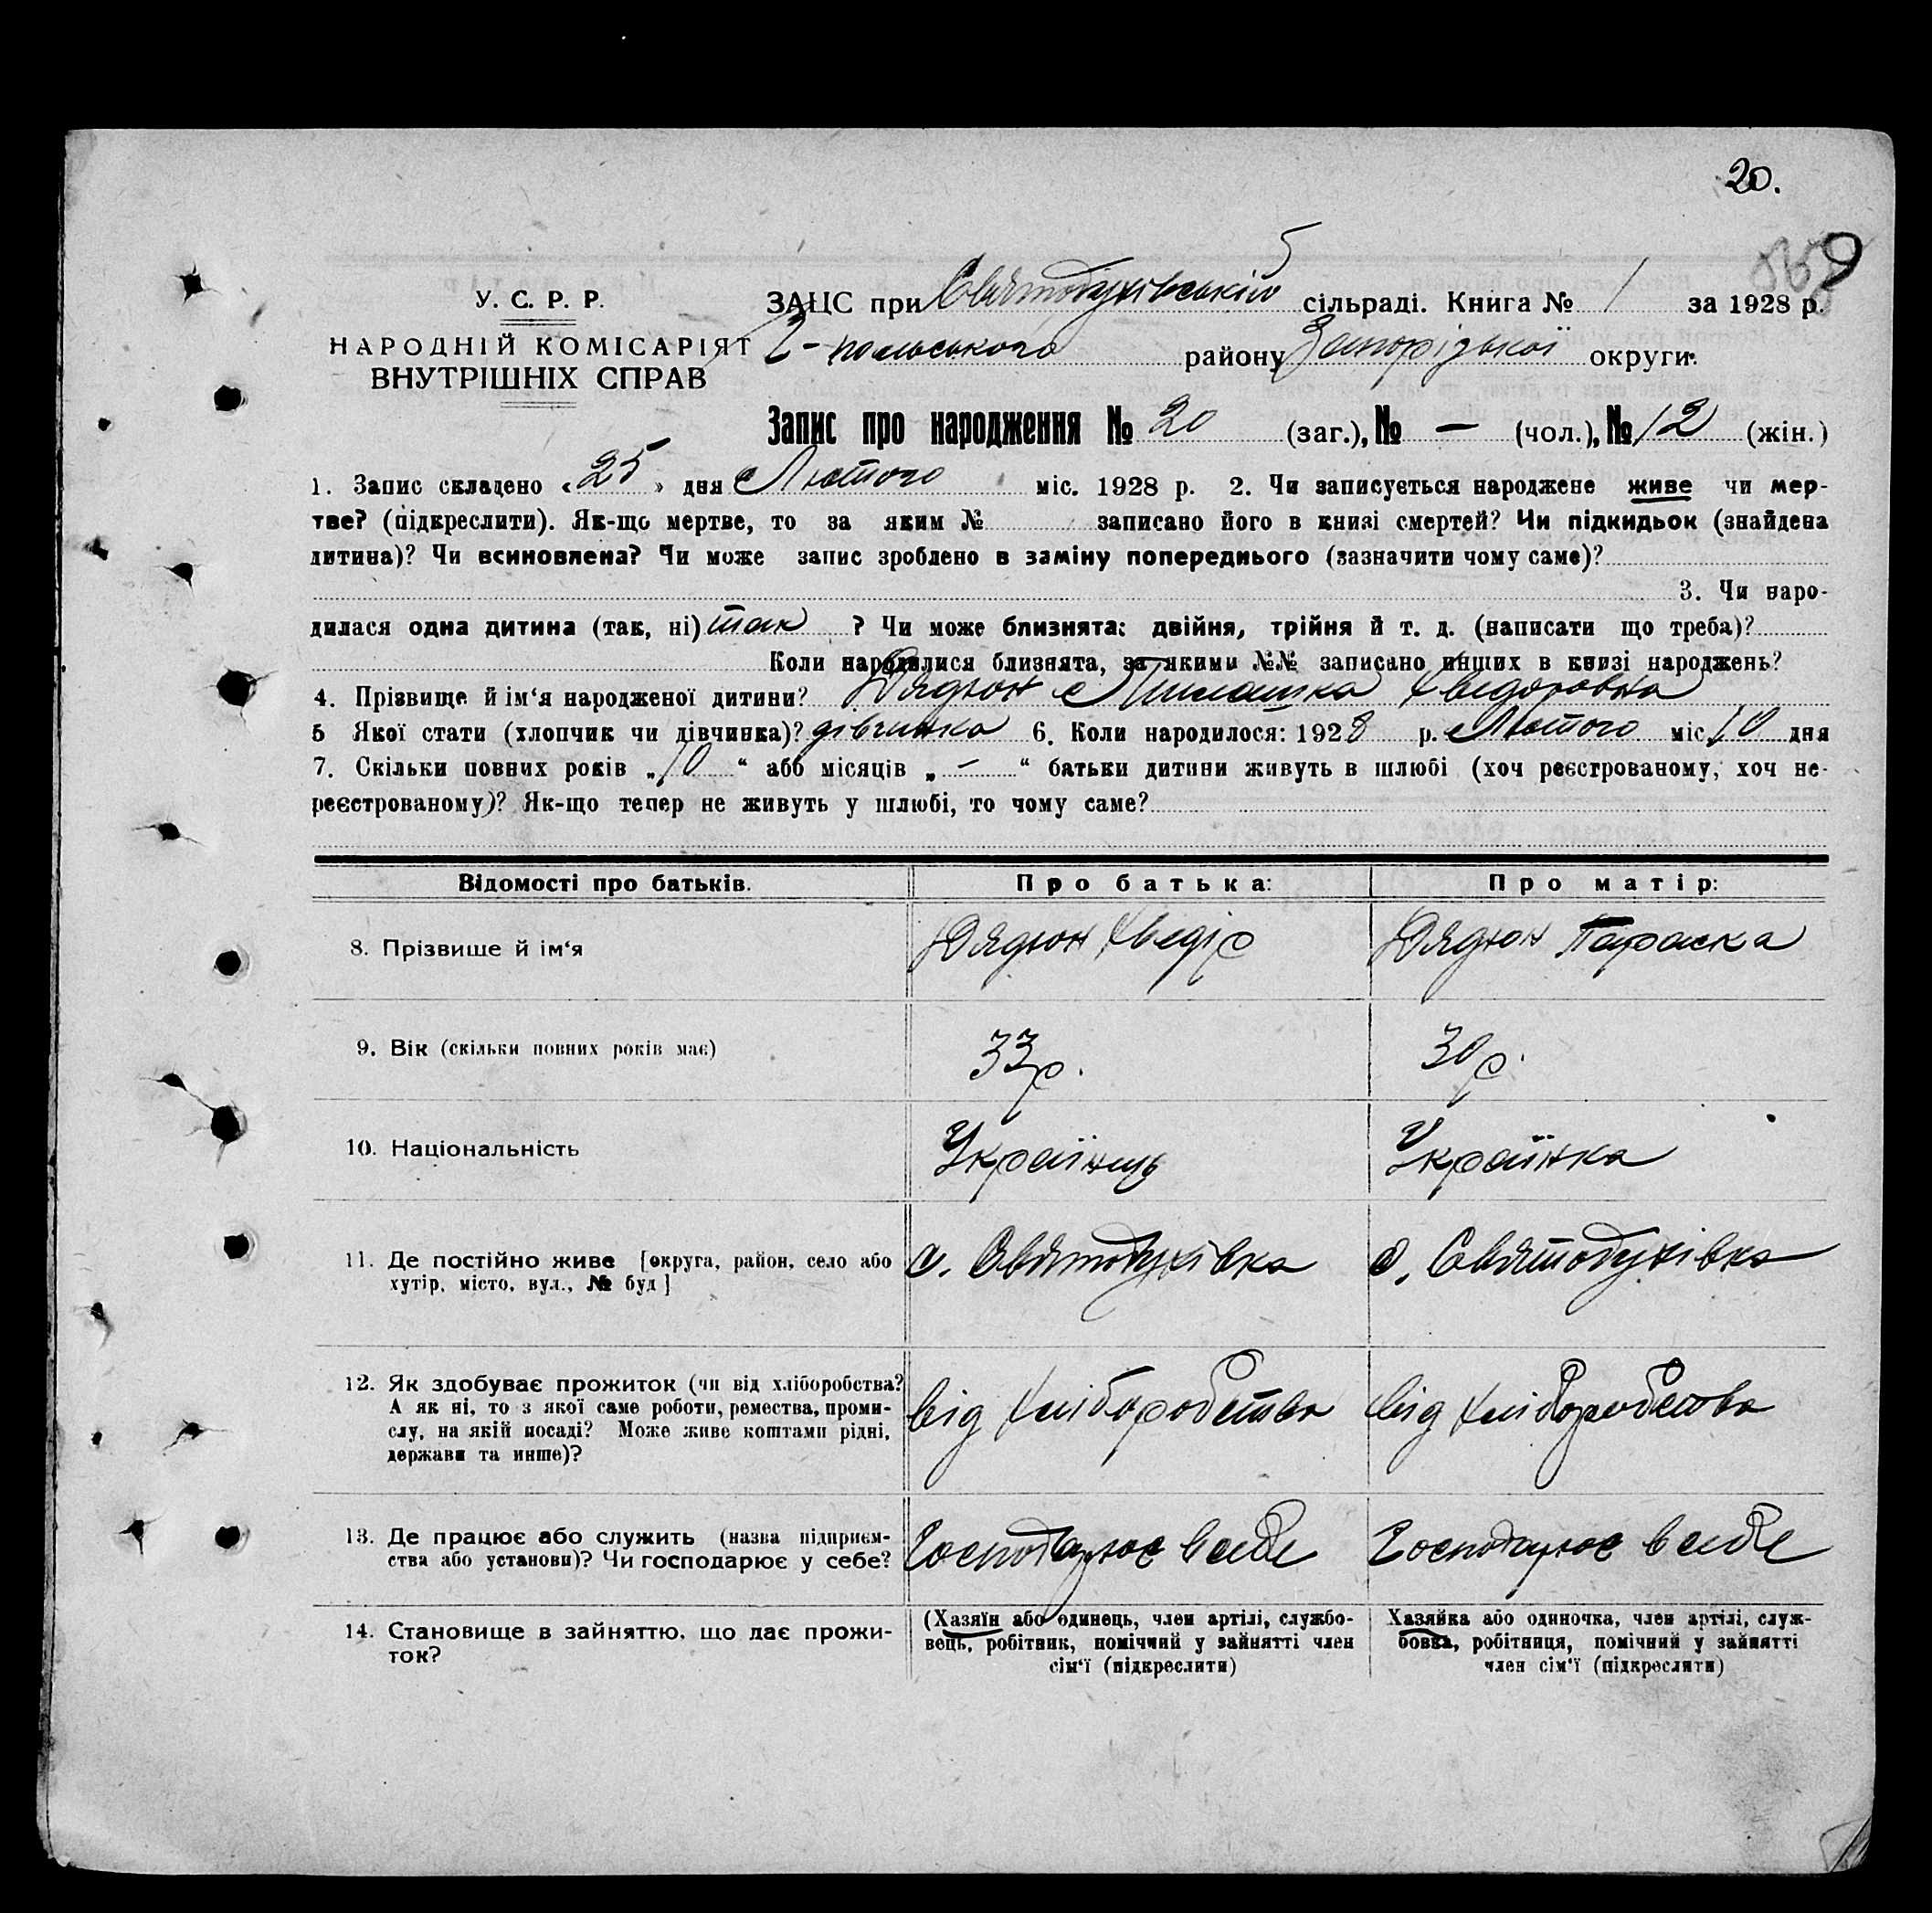 20.
9
У. С. Р. Р.
НАРОДНІЙ КОМІСАРІЯТ
ВНУТРІШНІХ СПРАВ
ЗАЦС при Святодухівській сільраді. Книга № 1 за 1928 р.
-польського району Запорізької округи.
Запис про народження № 20 (заг.), № — (чол.), № 12 (жін.)
1. Запис складено «25» дня Лютого міс. 1928 р. 2. Чи записується народжене живе чи мер-
тве? (підкреслити). Як-що мертве, то за яким № записано його в книзі смертей? Чи підкидьок (знайдена
дитина)? Чи всиновлена? Чи може запис зроблено в заміну попереднього (зазначити чому саме)?
3. Чи наро-
дилася одна дитина (так, ні) так ? Чи може близнята: двійня, трійня й т. д. (написати що треба)?
Коли народилися близнята, за якими №№ записано инших в книзі народжень?
4. Прізвище й ім‘я народженої дитини? Дядюн Хведоровна
5 Якої стати (хлопчик чи дівчинка)? дівчинка 6. Коли народилося: 1928 р. Лютого міс. 10 дня
7. Скільки повних років „10“ або місяців „—“ батьки дитини живуть в шлюбі (хоч реєстрованому, хоч не-
реєстрованому)? Як-що тепер не живуть у шлюбі, то чому саме?
Відомості про батьків. Про батька: Про матір:
8. Прізвище й ім‘я Дядюн Хведір Дядюн Параска
9. Вік (скільки повних років має) 33 р. 30 р.
10. Національність Українць Українка
11. Де постійно живе [округа, район, село або
хутір, місто, вул., № буд] с. Святодухівка с. Святодухівка
12. Як здобуває прожиток (чи від хліборобства?
А як ні, то з якої саме роботи, ремества, проми-
слу, на якій посаді? Може живе коштами рідні,
держави та инше)? від хліборобства від хліборобства
13. Де працює або служить (назва підприєм-
ства або установи)? Чи господарює у себе? Господарює в себе Господарює в себе
14. Становище в зайняттю, що дає прожи-
ток?
(Хазяїн або одинець, член артілі, службо-
вець, робітник, помічний у зайнятті член
сім‘ї (підкреслити)
Хазяйка або одиночка, член артілі, служ-
бовка, робітниця, помічний у зайнятті
член сім‘ї (підкреслити)